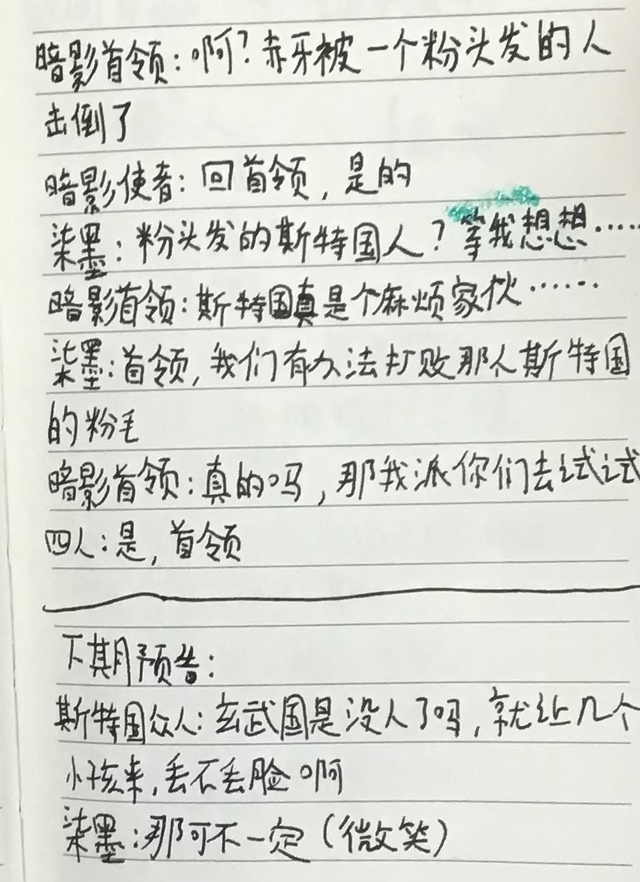 暗影首领：啊？赤牙被一个粉头发的人
击倒了
暗影使者：回首领，是的
柒墨：粉头发的斯特国人？等我想想……
暗影首领：斯特国真是个麻烦家伙……
柒墨：首领，我们有办法打败那人斯特国
的粉毛
暗影首领：真的吗，那我派你们去试试
四人：是，首领
下期预告：
斯特国众人：玄武国是没人了吗，就让几个
小孩来，丢不丢脸啊
柒墨：那可不一定（微笑）